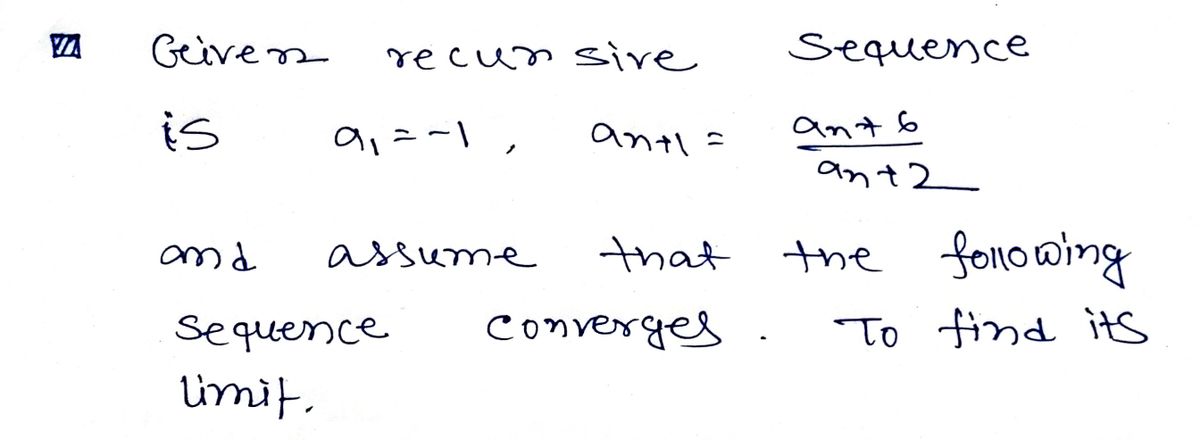 Given recursive Sequence
is a₁ = -1 , aₙ₊₁ = \frac{aₙ + 6}{aₙ + 2}
and assume that the following
sequence converges . To find its
limit.